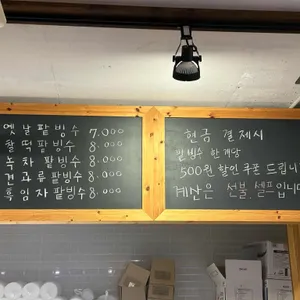 옛날팥빙수 7.000
찰떡팥빙수 8.000
녹차 팥빙수 8.000
견과류팥빙수 8.000
흑임자팥빙수 8.000
현금 결제시
팥빙수 한개당
500원 할인 쿠폰 드립니
계산은 선불, 셀프입니다